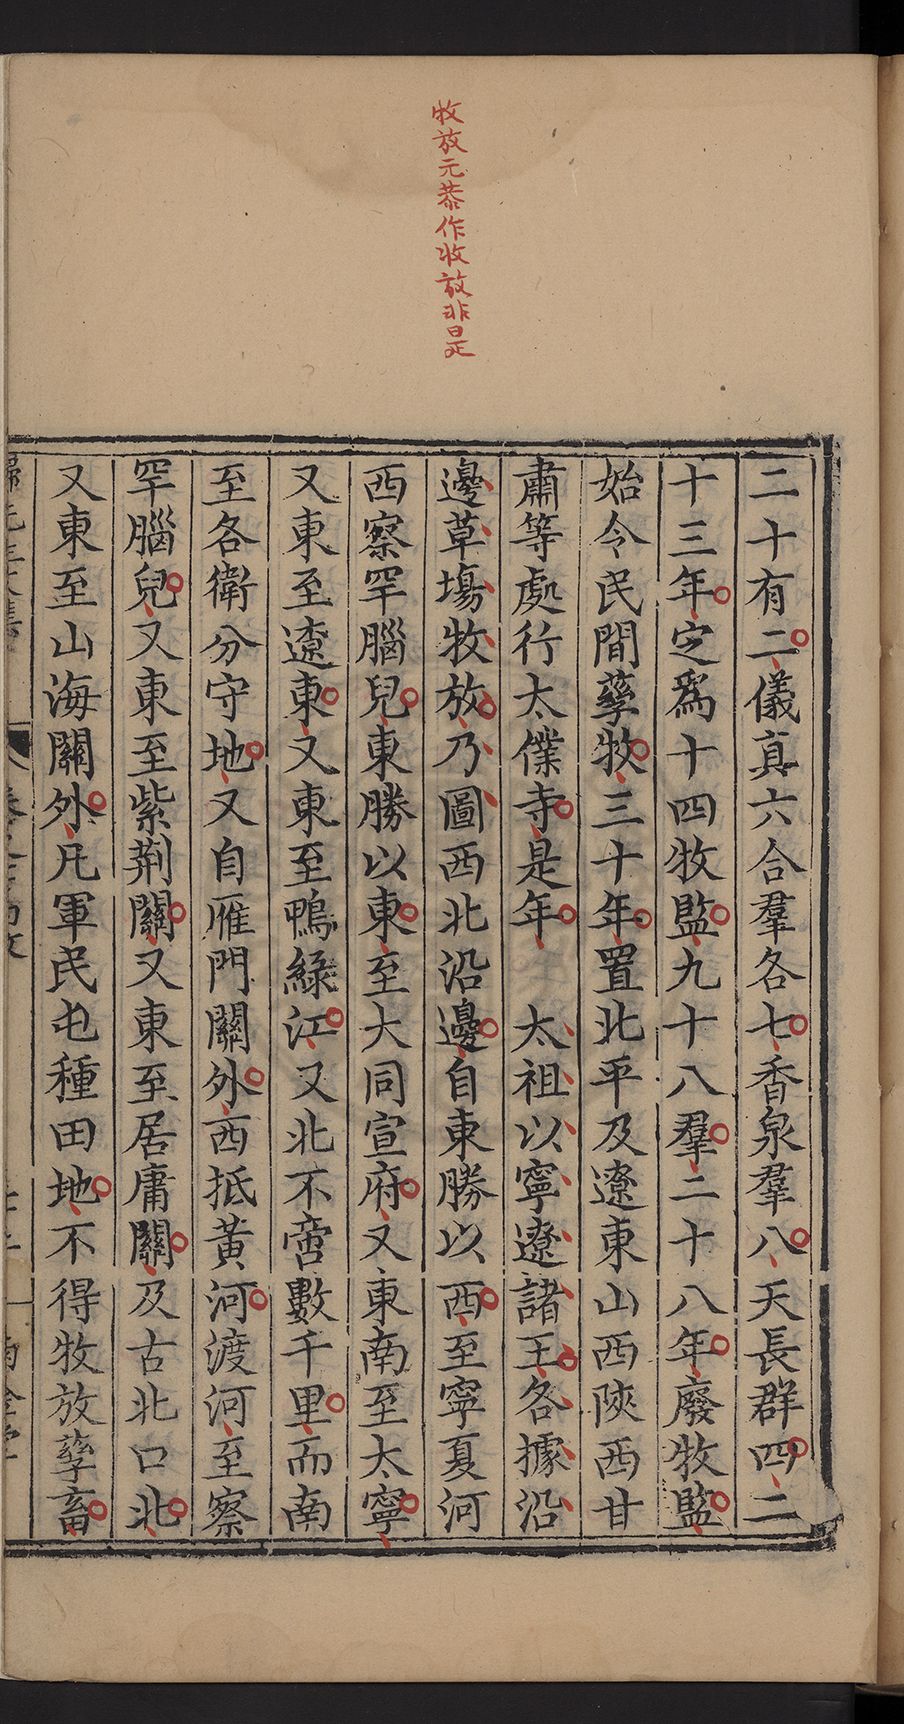 牧放元恭作收放非是
二十有二儀真六合羣各七香泉羣八天長群四二
十三年定爲十四牧監九十八羣二十八年廢牧監
始令民間孳牧三十年置北平及遼東山西陝西甘
肅等處行太僕寺是年　太祖以寧遼諸王各據沿
邊草塲牧放乃圖西北沿邊自東勝以西至寧夏河
西察罕腦兒東勝以東至大同宣府又東南至大寧
又東至遼東又東至鴨綠江又北不啻數千里而南
至各衛分守地又自雁門關外西抵黃河渡河至察
罕腦兒又東至紫荆關又東至居庸關及古北口北
又東至山海關外凡軍民屯種田地不得牧放孳畜